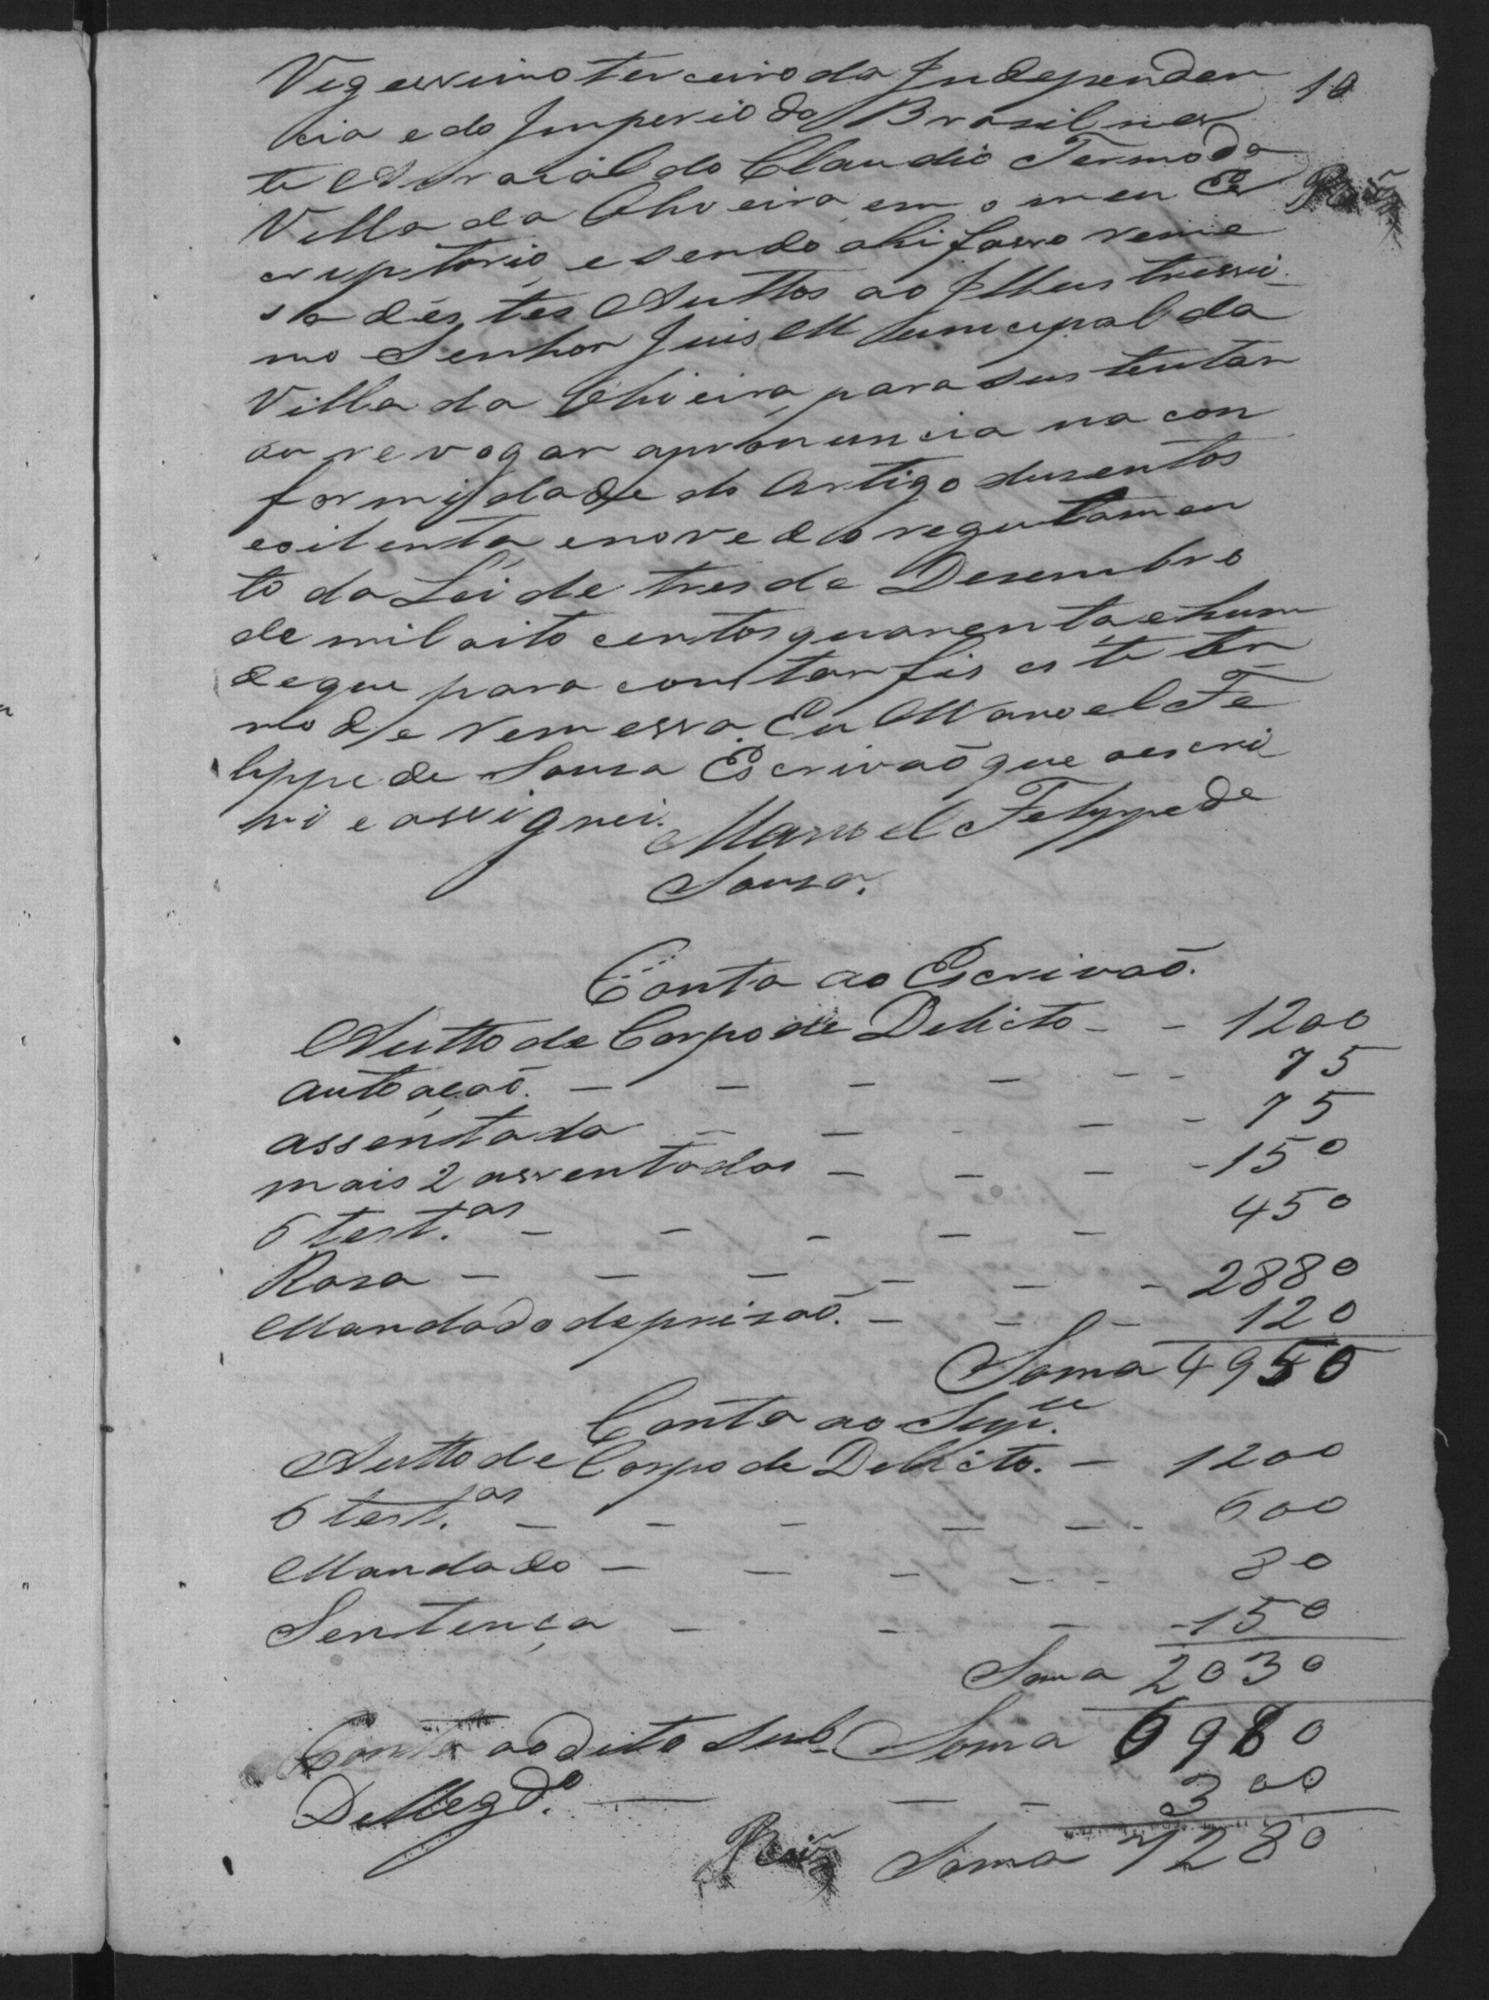 Vigessimo terceiro da Independen
cia e do Imperio do Brasil nes
te Arraial do Claudio Termo da
Villa da Oliveira em o meu Es
criptorio, e sendo ahi fasso reme
ssa destes Auttos ao Illustrissi
mo Senhor Juis Municipal da
Villa da Oliveira para sustentar
ou revogar apronuncia na con
formidade do Artigo dusentos
eoitenta enove do regulamen
to da Lei de tres de Desembro
de mil oito centos quarenta e hum
de que para constar fis este ter
mo de remessa. Eu Manoel Fe
lippe de Sousa Escrivaõ que oescri
vi e assignei. Manoel Felippe de
Sousa.
10
Conta ao Escrivaõ.
Autto de Corpo de Delicto - - 1200
autoaçaõ. - - - - - - 75
assentada - - - - - 75
mais 2 assentadas - - - - 150
6 test.as - - - - - 450
Rasa - - - - - - 2880
Mandado deprizaõ. - - - 120
Soma 4950
Conta ao Sup.e
Autto de Corpo de Delicto. - 1200
6 test.as - - - - - 600
Mandado - - - - - 80
Sentença - - - - 150
Soma 2030
Conta ao dito Sub Soma 6980
Delleg.do - - - 300
Soma 7280